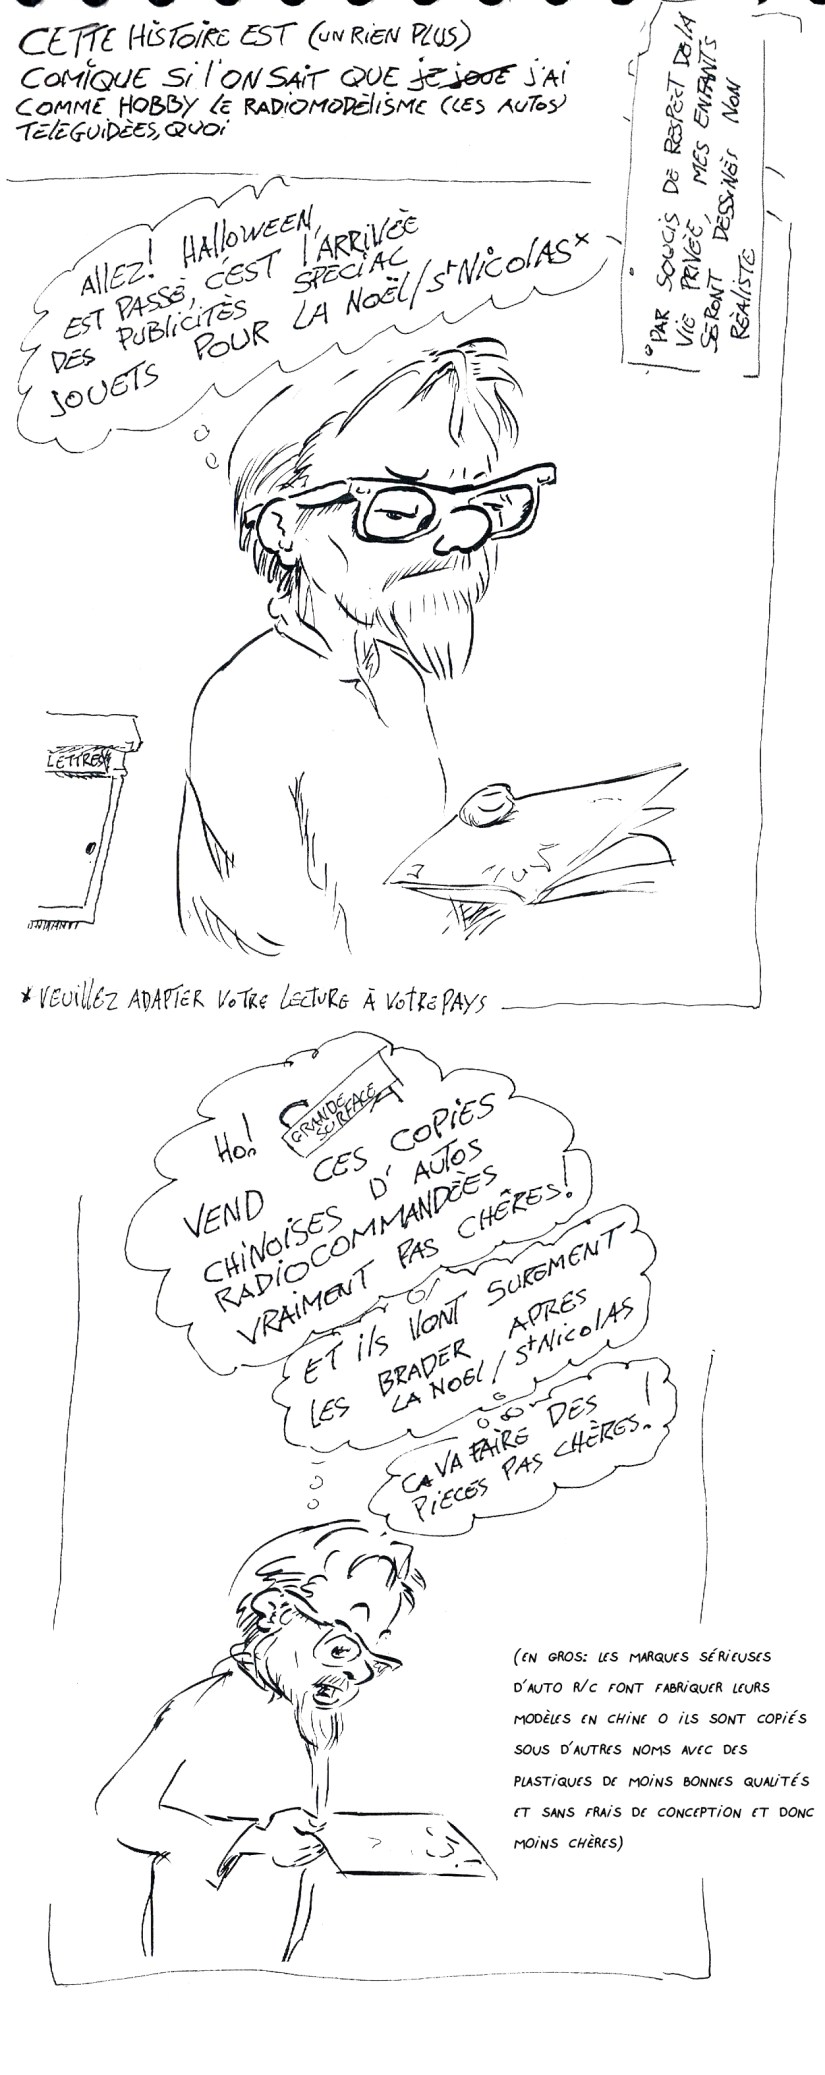 CETTE HISTOIRE EST (UN RIEN PLUS)
COMIQUE SI L'ON SAIT QUE JE JOUE J'AI
COMME HOBBY LE RADIOMODÉLISME (LES AUTOS
TÉLÉGUIDÉES, QUOI
°PAR SOUCIS DE RESPECT DE LA
VIE PRIVÉE, MES ENFANTS
SERONT DESSINÉS NON
RÉALISTE
ALLEZ! HALLOWEEN,
EST PASSÉ, C'EST L'ARRIVÉE
DES PUBLICITÉS SPÉCIAL
JOUETS POUR LA NOËL/St NICOLAS*
LETTRES
* VEUILLEZ ADAPTER VOTRE LECTURE À VOTRE PAYS
HO! GRANDE
SURFACE
VEND CES COPIES
CHINOISES D'AUTOS
RADIOCOMMANDÉES
VRAIMENT PAS CHÈRES!
ET ILS VONT SUREMENT
LES BRADER APRÈS
LA NOEL / St NICOLAS
CA VA FAIRE DES
PIECES PAS CHÈRES!
(EN GROS: LES MARQUES SÉRIEUSES
D'AUTO R/C FONT FABRIQUER LEURS
MODÈLES EN CHINE O ILS SONT COPIÉS
SOUS D'AUTRES NOMS AVEC DES
PLASTIQUES DE MOINS BONNES QUALITÉS
ET SANS FRAIS DE CONCEPTION ET DONC
MOINS CHÈRES)